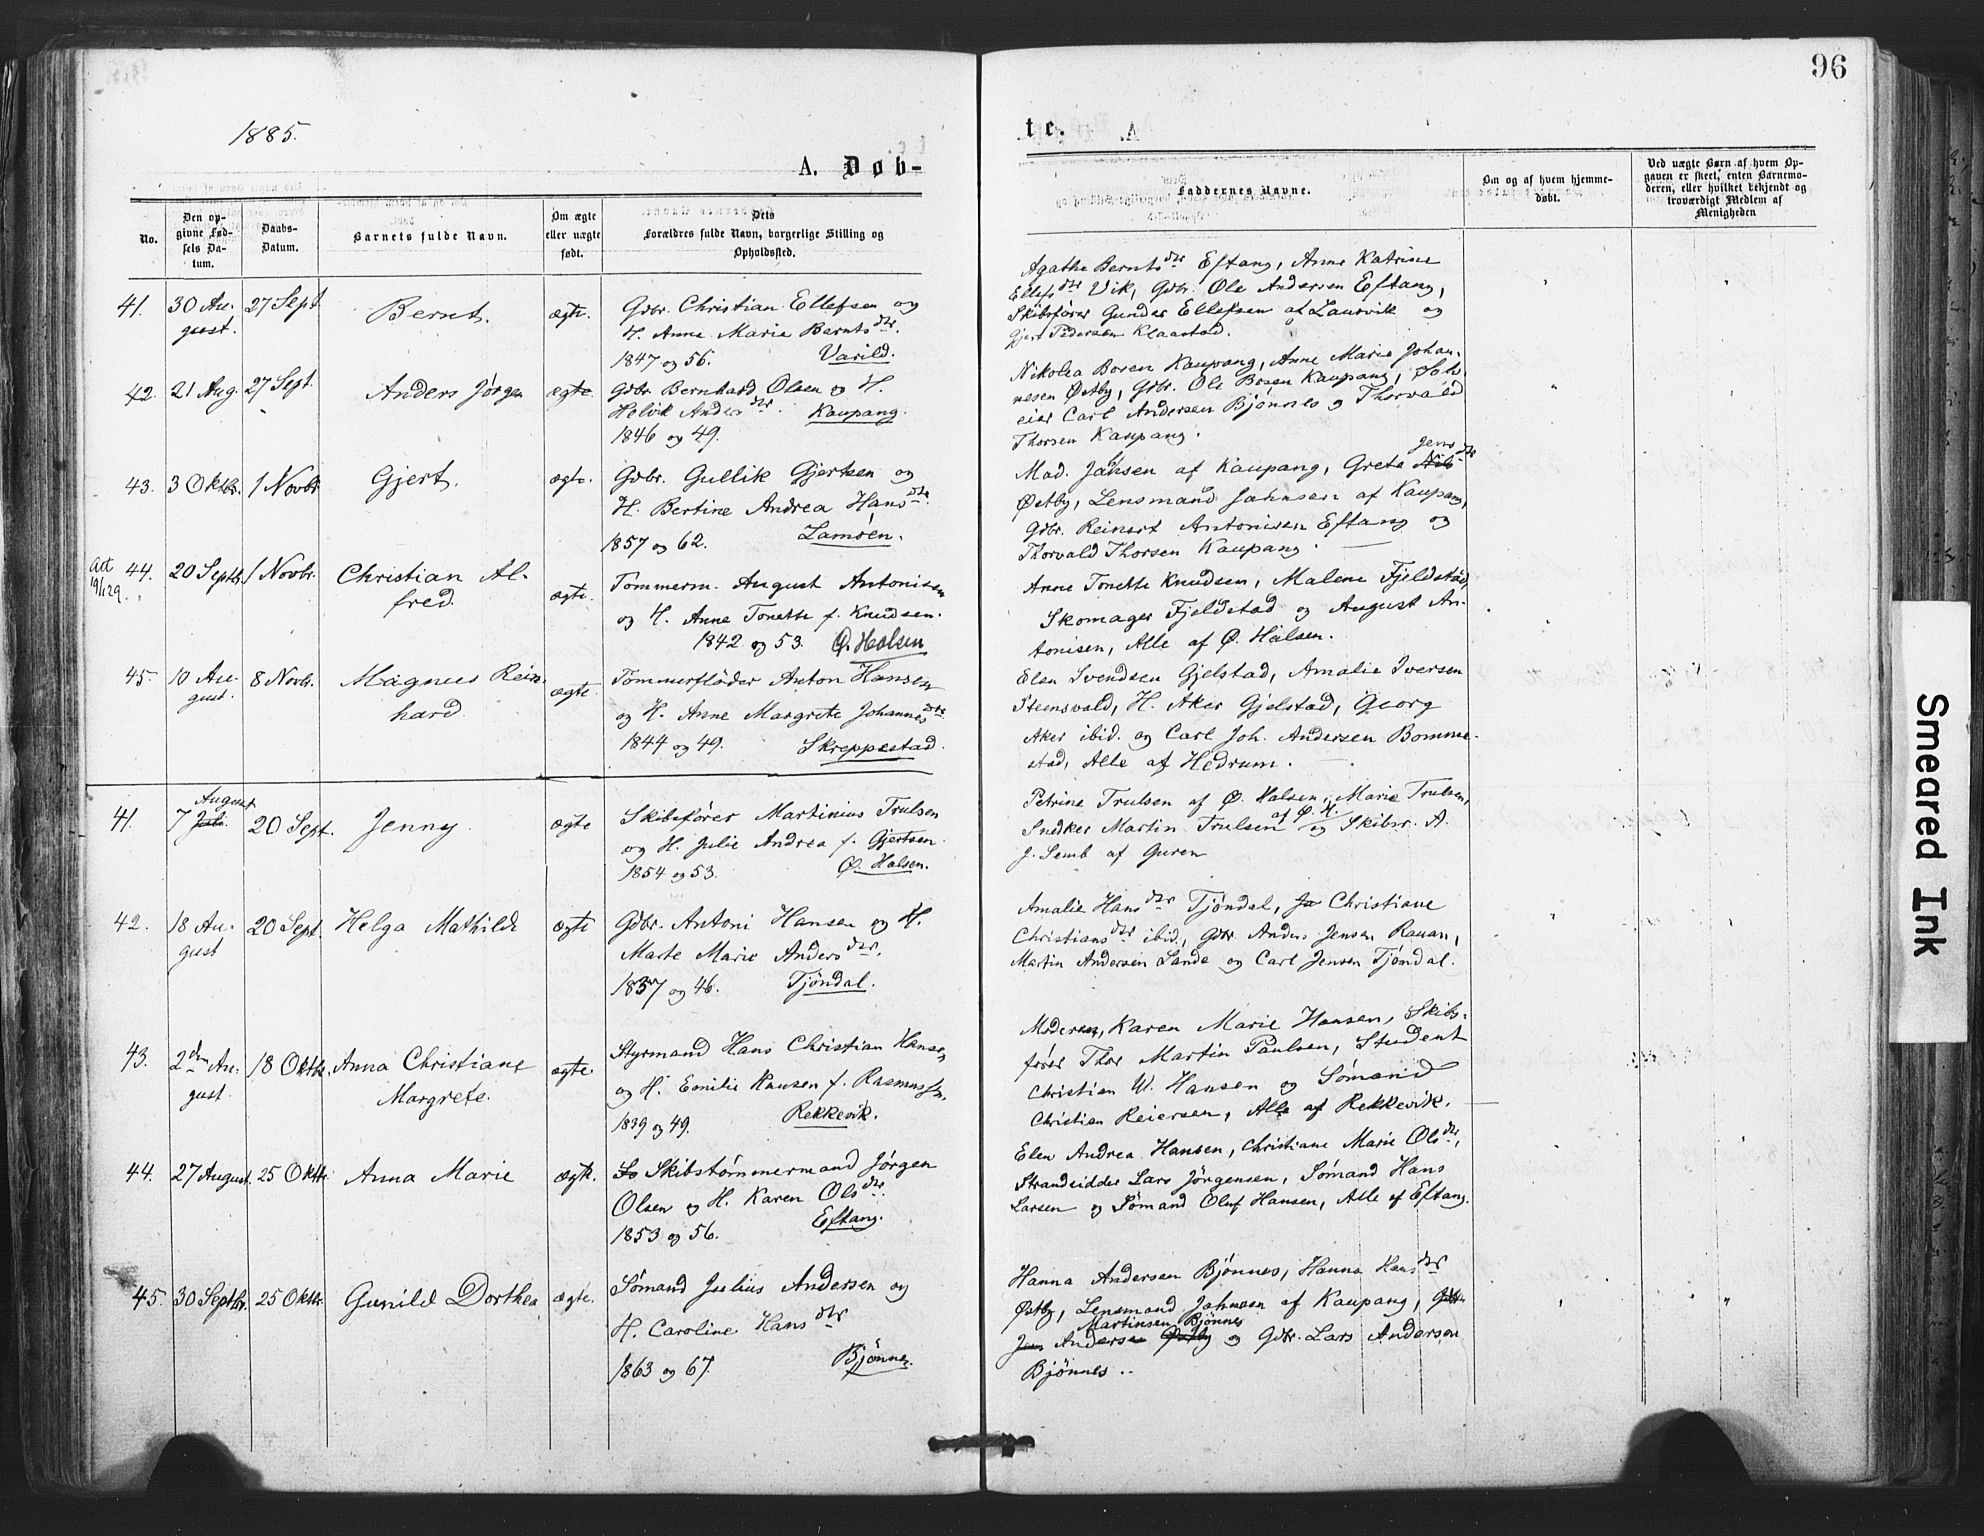 1885.
A. Døb-
No.
Den op-
givne Fød-
sels Da-
tum.
Daabs-
Datum.
Barnets fulde Navn.
Om ægte
eller uægte
født.
Dets
Forældres fulde Navn, borgerlige Stilling og
Opholdssted.
41. 30 Au- 27 Sept. Bernt. ægte. Gdbr. Christian Ellefsen og
gust. H. Anne Maria Berntsdtr.
1847 og 56. Varild.
42. 21 Aug. 27 Sept. Anders Jørgen ægte. Gdbr. Bernhard Olsen og H.
Andersdtr. Kaupang.
1846 og 49.
43. 3 Oktbr. 1 Novbr. Gjert. ægte. Gdbr. Gullik Gjertsen og
H. Bertine Andrea Hansdtr.
1857 og 62. Lamøen.
Att
19/129.
44. 20 Septbr. 1 Novbr. Christian Al- ægte. Tømmerm. August Antonisen
fred. og H. Anne Tonette f. Knudsen.
1842 og 53. Ø. Halsen
45. 10 Au- 8 Novbr. Magnus Rein- ægte. Tømmerfløder Anton Hansen
gust. hard. og H. Anne Margrete Johannesdtr
1844 og 49. Skreppestad.
41. 7 August Juli 20 Sept. Jenny. ægte Skibsfører Martinius Trulsen
og H. Julie Andrea f. Gjertsen.
1854 og 53. Ø. Halsen.
42. 18 Au- 20 Sept. Helga Mathilde ægte Gdbr. Antoni Hansen og H.
gust Marte Marie Andersdtr.
1837 og 46. Tjöndal.
43. 2den Au- 18 Oktbr. Anna Christiane ægte. Styrmand Hans Christian Hansen
gust. Margrete. og H. Emilie Hansen f. Rasmussen.
1839 og 49. Rekkevik.
44. 27 August. 25 Oktbr. Anna Marie ægte. Skibstømmermand Jørgen
Olsen og H. Karen Olsdtr.
1853 og 56. Eftang.
45. 30 Septbr. 25 Oktbr. Gunild Dorthea ægte. Sømand Julius Andersen og
H. Caroline Hansdtr
1863 og 67. Bjønnes.
96
te.
Faddernes Navne.
Om og af hvem hjemme-
døbt.
Ved uægte Børn af hvem Op-
gaven er skeet, enten Barnemo-
deren, eller hvilket bekjendt og
troværdigt Medlem af
Menigheden
Agathe Berntsdtr Eftang, Anne Katrine
Ellefsdtr Vik, Gdbr. Ole Andersen Eftang,
Skibsfører Gunder Ellefsen af Laurvik og
Gjert Pedersen Klaastad.
Nikolea Boresen Kaupang, Anne Marie Johan-
nesen Østby, Gdbr. Ole Boresen Kaupang, Selv-
eier Carl Andersen Bjønnes og Thorvald
Thorsen Kaupang.
Mad. Jahsen af Kaupang, Grete Jensdtr
Østby, Lensmand Jahnsen af Kaupang,
Gdbr. Reinert Antonisen Eftang og
Thorvald Thorsen Kaupang.
Anne Tonette Knudsen, Malene Fjeldstad,
Skomager Fjeldstad og August An-
tonisen, Alle af Ø. Halsen.
Elen Svendsen Gjelstad, Amalie Iversen
Steensvald, H. Aker Gjelstad, Georg
Aker ibid. og Carl Joh. Andersen Bomme-
stad, Alle af Hedrum.
Petrine Trulsen af Ø. Halsen, Marie Trulsen,
Snedker Martin Trulsen af Ø. H. og Skibsr. A.
J. Semb af Guren
Amalie Hansdtr Tjöndal, Christiane
Christiansdtr ibid., Gdbr Anders Jensen Rauan,
Martin Andersen Lande og Carl Jensen Tjöndal.
Moderen, Karen Marie Hansen, Skibs-
fører Thor Martin Paulsen, Student
Christian W. Hansen og Sømand
Christian Reiersen, Alle af Rekkevik.
Elen Andrea Hansen, Christiane Marie Olsdtr,
Strandsidder Lars Jörgensen, Sömand Hans
Larsen og Sömand Oluf Hansen, Alle af Eftang.
Hanna Andersen Bjønnes, Hanna Hansdtr
Østby, Lensmand Jahnsen af Kaupang, Gdbr
Martinsen Bjönnes
Jens Andersen Østby og Gdbr. Lars Andersen
Bjönnes.
Smeared Ink